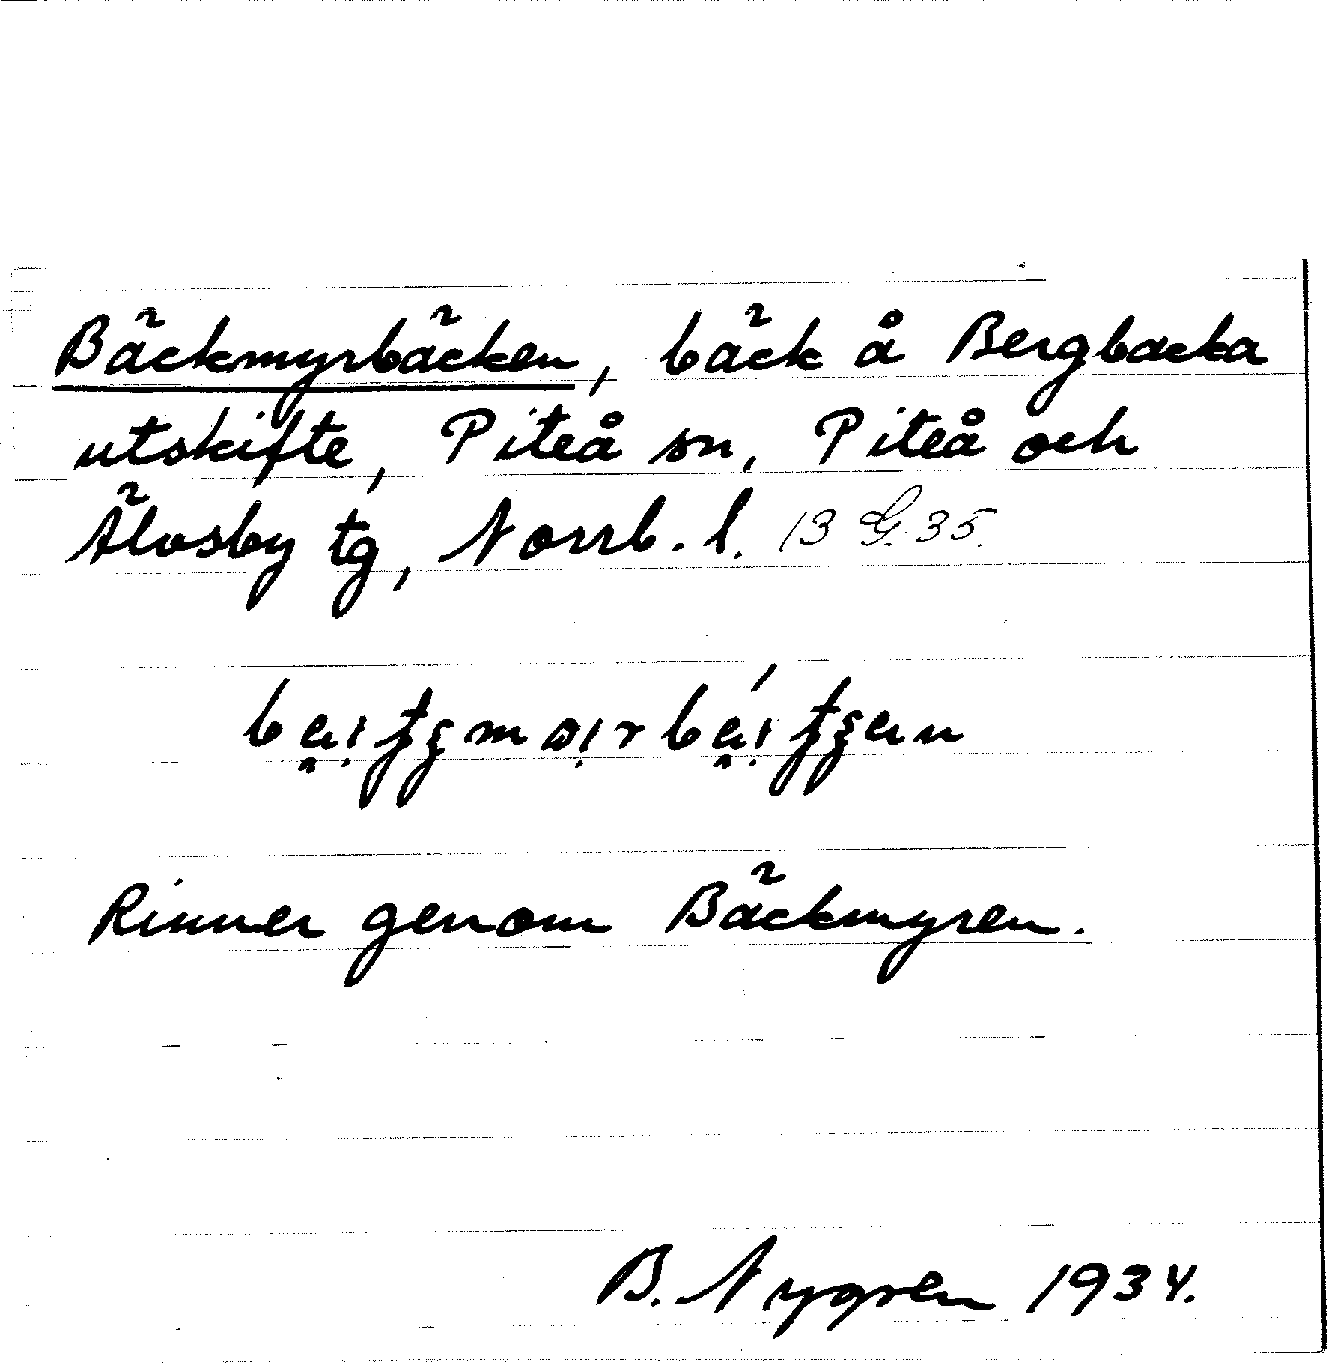 Bäckmyrbäcken, bäck å Bergbacka
utskifte, Piteå sn, Piteå och
Älvsby tg, Norrb. l. 13 G. 35.
Rinner genom Bäckmyren.
B. Nygren 1934.